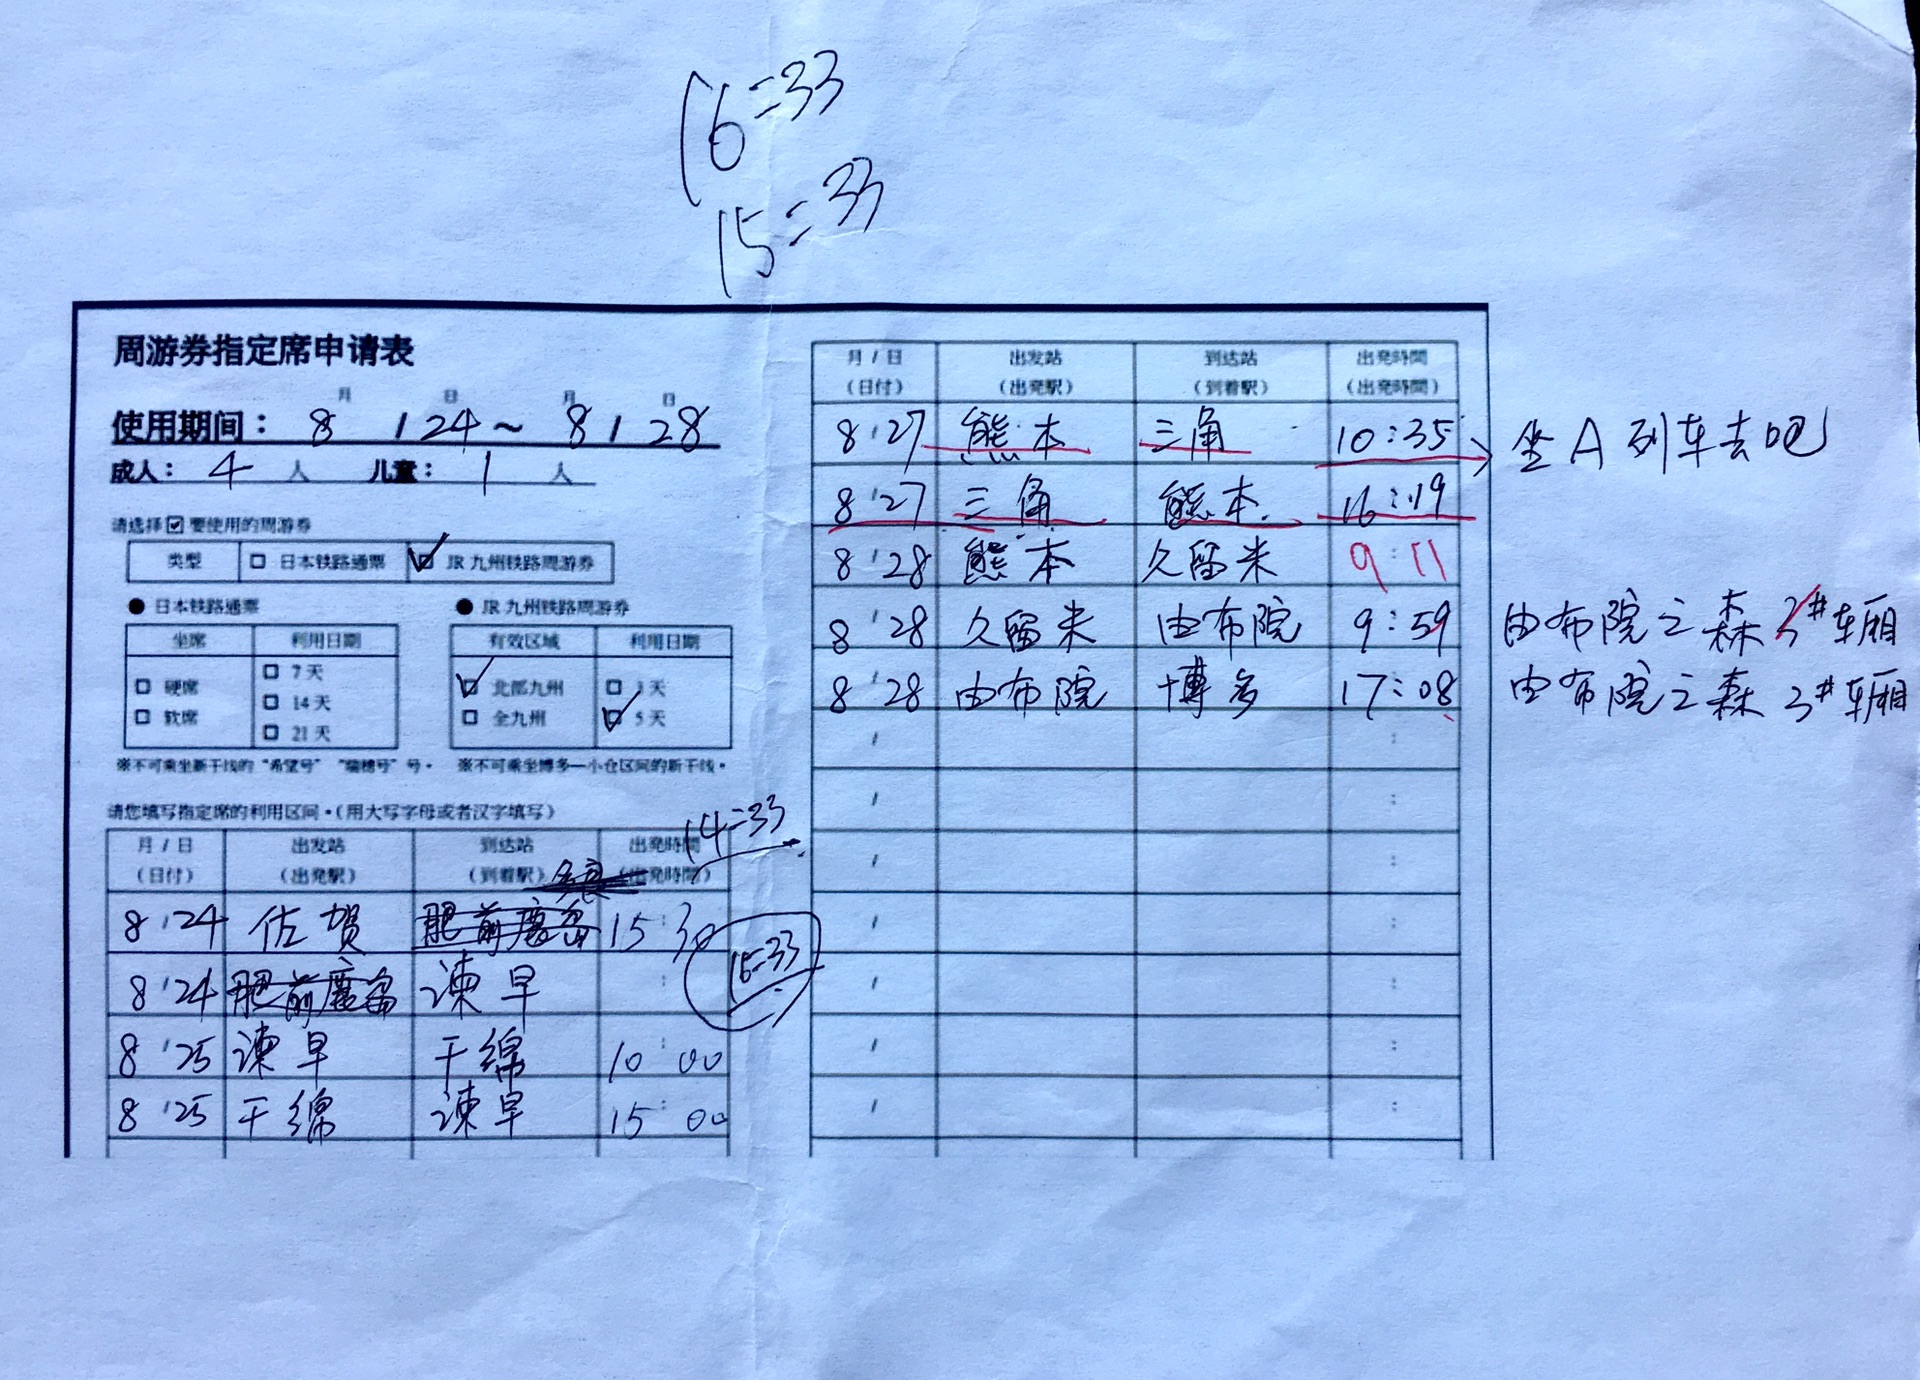 16:33
15:33
周游券指定席申请表
月 日 月 日
使用期间： 8 / 24 ~ 8 / 28
成人： 4 人 儿童： 1 人
请选择☑要使用的周游券
类型 □ 日本铁路通票 ☑ JR 九州铁路周游券
● 日本铁路通票 ● JR 九州铁路周游券
坐席 利用日期 有效区域 利用日期
□ 硬席 □ 7 天 ☑ 北部九州 □ 3 天
□ 软席 □ 14 天 □ 全九州 ☑ 5 天
□ 21 天
※不可乘坐新干线的“希望号”“瑞穗号”号。 ※不可乘坐博多—小仓区间的新干线。
请您填写指定席的利用区间。（用大写字母或者汉字填写）
14:33
月 / 日 出发站 到达站 出発時間
（日付） （出発駅） （到着駅） （出発時間）
8 / 24 佐賀 肥前 15:30
15:33
8 / 24 肥前 諫早 :
8 / 25 諫早 千綿 10:00
8 / 25 千綿 諫早 15:00
月 / 日 出发站 到达站 出発時間
（日付） （出発駅） （到着駅） （出発時間）
8 / 27 熊本 三角 10:35 坐A列车去吧
8 / 27 三角 熊本 16:19
8 / 28 熊本 久留米 9:11
8 / 28 久留米 由布院 9:59 由布院之森 3#车厢
8 / 28 由布院 博多 17:08 由布院之森 3#车厢
/ :
/ :
/ :
/ :
/ :
/ :
/ :